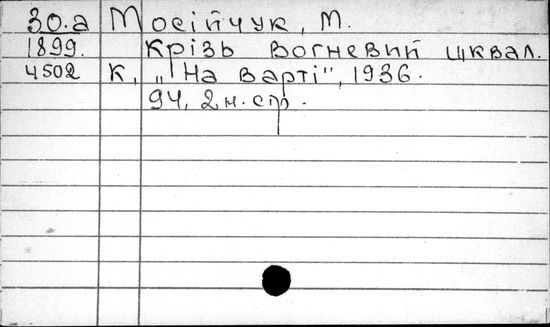 30.a Мосійчук, М.
1899. Крізь вогневий шквал.
4502 К, „На варті", 1936.
94, 2 н. стр.